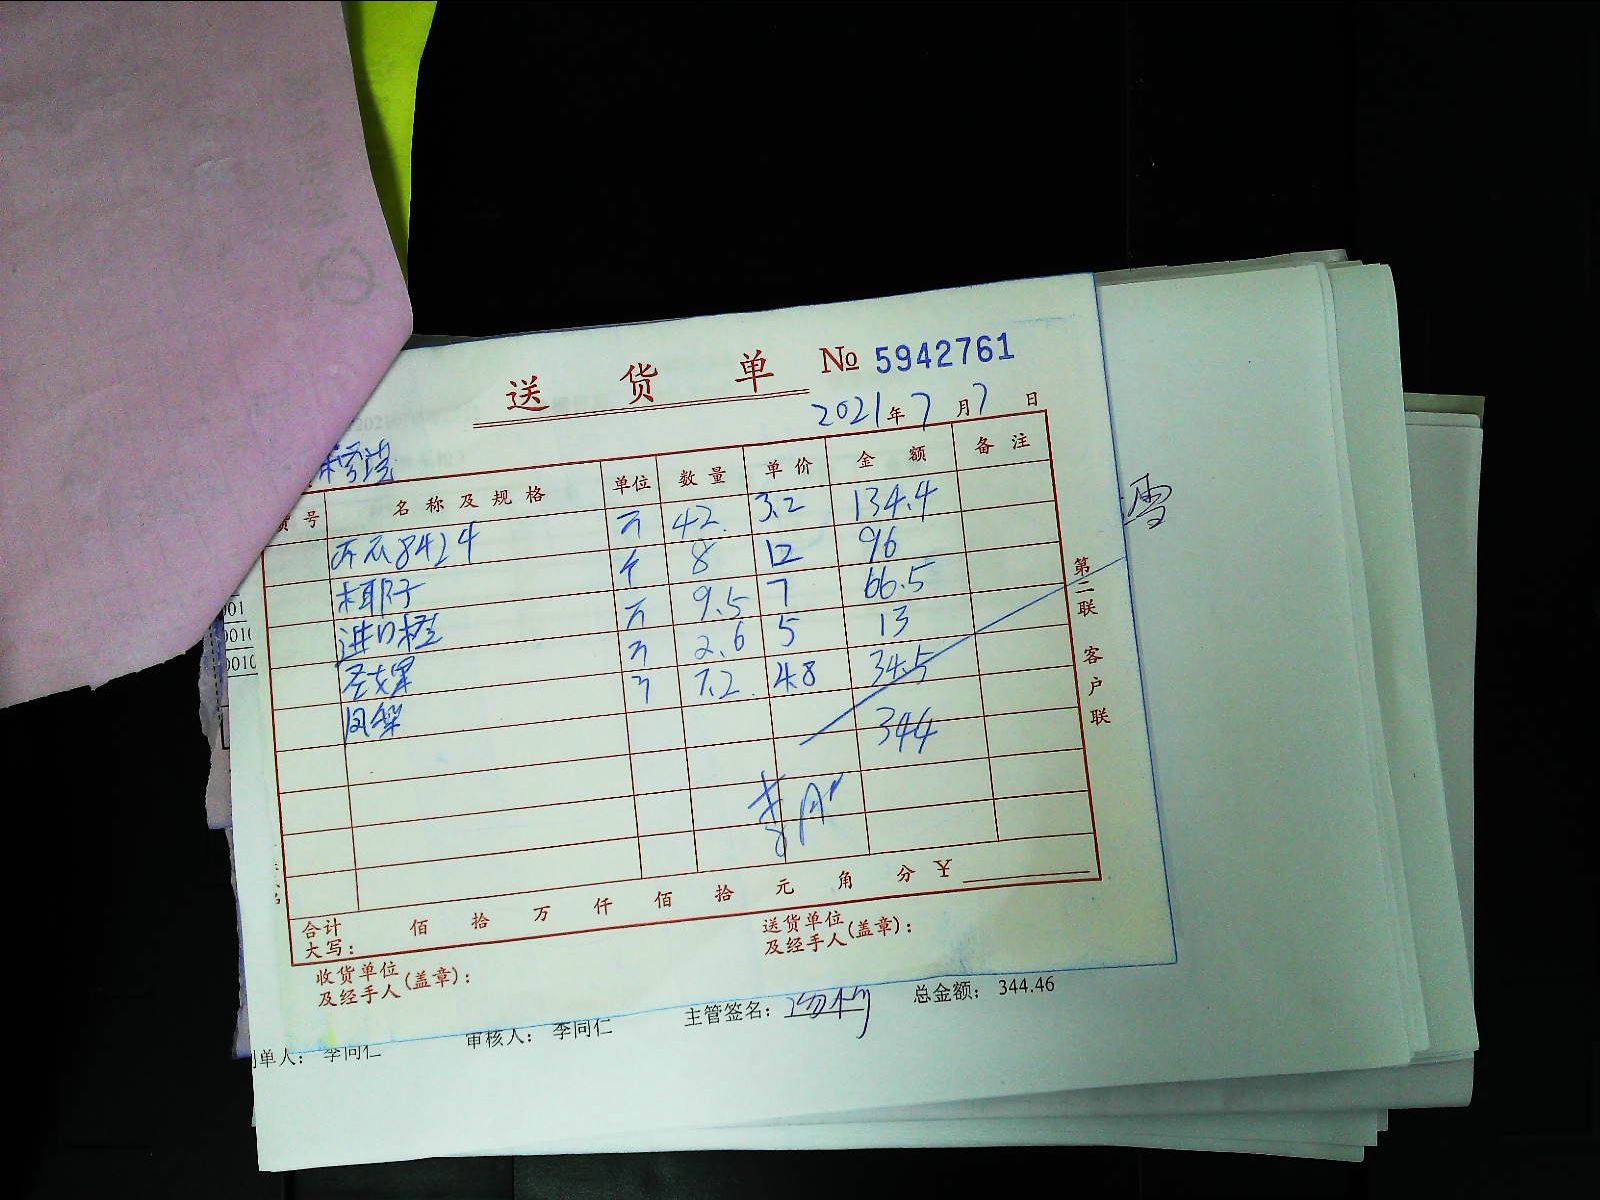 送 货 单 № 5942761
2021年7月7日
货号 名称及规格 单位 数量 单价 金额 备注
8424 斤 42. 3.2 134.4
椰子 个 8 12 96
进口橙 斤 9.5 7 66.5
圣女果 斤 2.6 5 13
凤梨 斤 7.2 4.8 34.5
344
合计
大写： 佰 拾 万 仟 佰 拾 元 角 分 ¥
收货单位
及经手人(盖章)：
送货单位
及经手人(盖章)：
第二联 客户联
001
0010
0010
制单人： 李同仁
审核人： 李同仁
主管签名：
总金额： 344.46